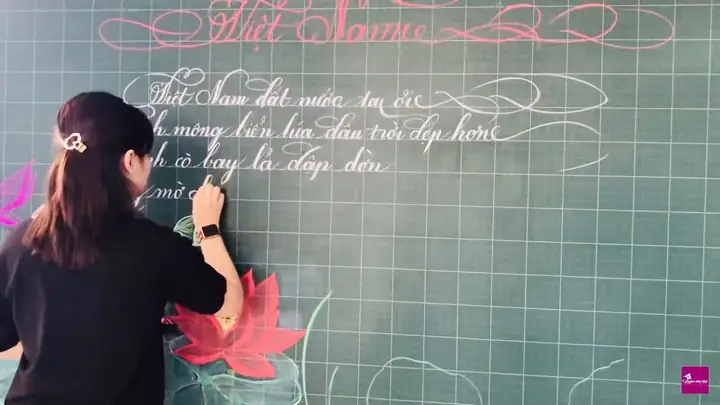 Việt Nam
Việt Nam đất nước ta ơi
h mông biển lúa đâu trời đẹp hơn
h cò bay lả dập dờn
mờ